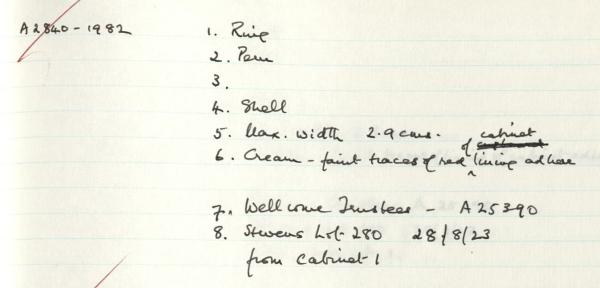 A2840-1982
1. Ring
2. Peru
3.
4. Shell
5. Max. width 2.9 cms.
6. Cream - faint traces of red of cabinet lining adhere
7. Wellcome Trustees - A25390
8. Stevens Lot 280 28/8/23
from Cabinet 1